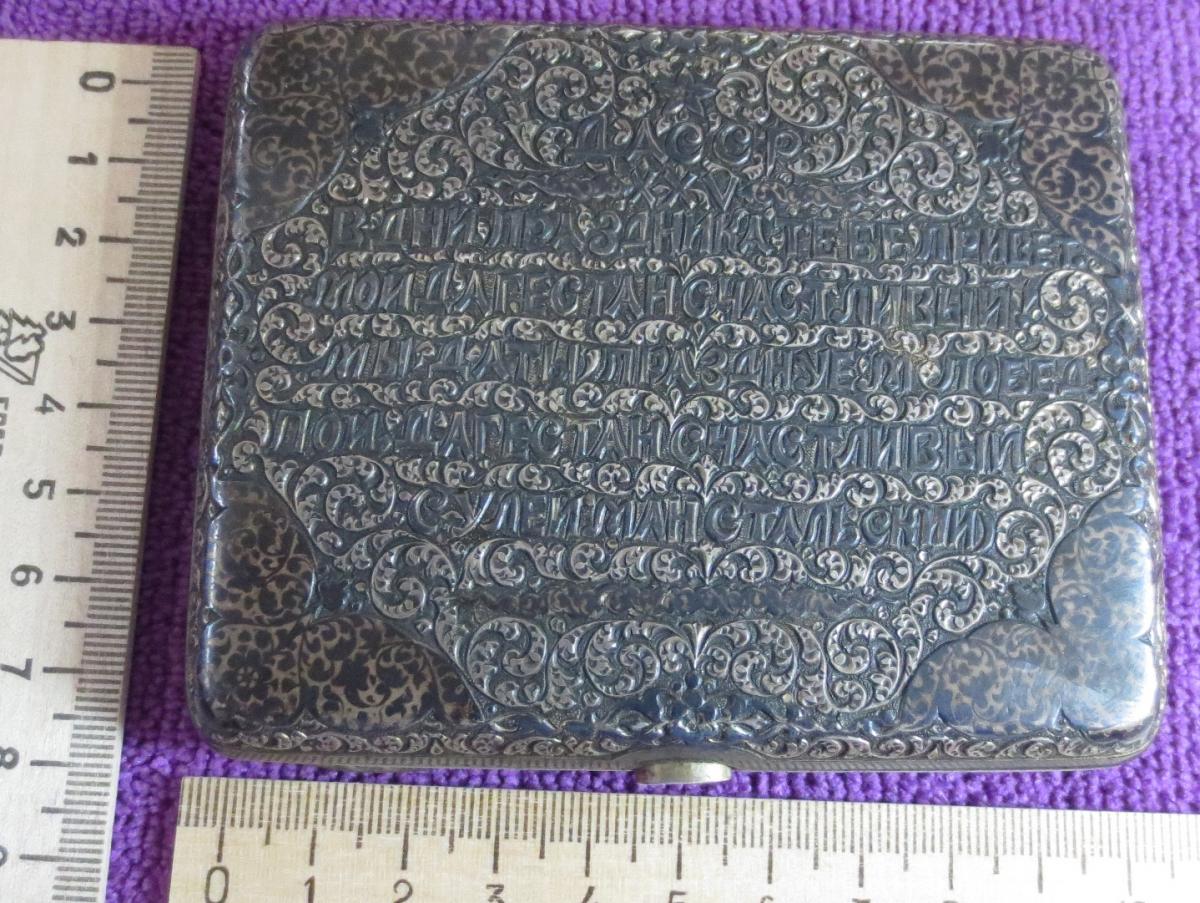 ДАССР
XXV
В ДНИ ПРАЗДНИКА ТЕБЕ ПРИВЕТ
МОЙ ДАГЕСТАН СЧАСТЛИВЫЙ
МЫ ДАТИ ПРАЗДНУЕМ ПОБЕД
МОЙ ДАГЕСТАН СЧАСТЛИВЫЙ
СУЛЕЙМАН СТАЛЬСКИЙ
0 1 2 3 4 5 6 7 8
0 1 2 3 4 5 6 7